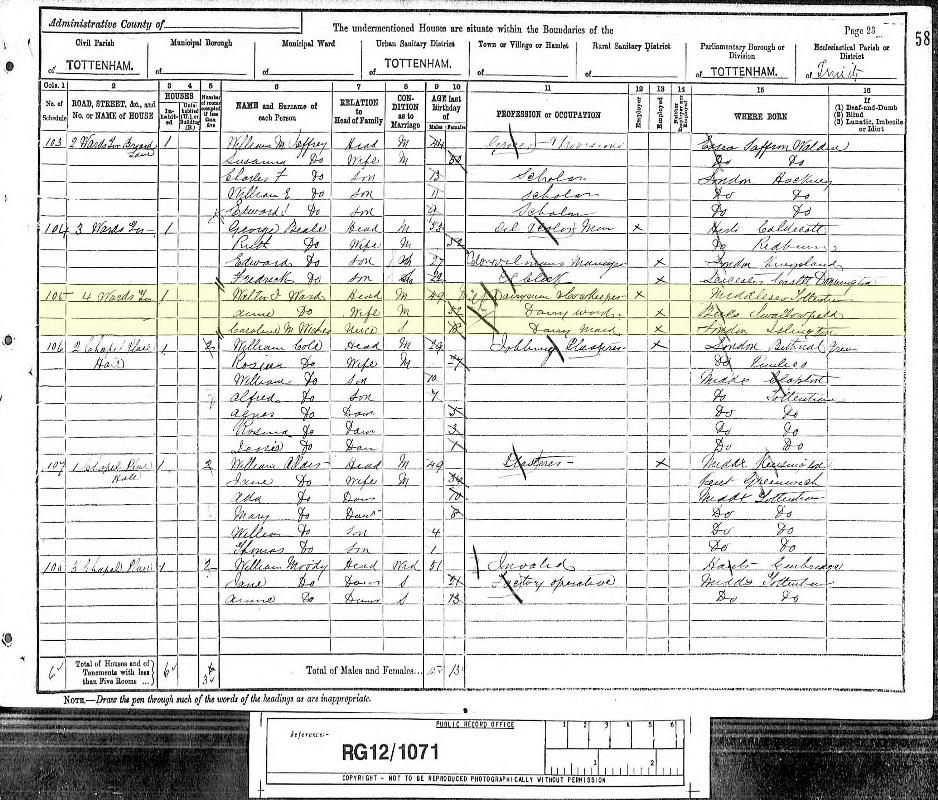 Administrative County of
The undermentioned Houses are situate within the Boundaries of the
Page 23
58
Civil Parish
Municipal Borough
Municipal Ward
Urban Sanitary District
Town or Village or Hamlet
Rural Sanitary District
Parliamentary Borough or Division
Ecclesiastical Parish or District
of TOTTENHAM.
of
of
of TOTTENHAM.
of
of
of TOTTENHAM.
of
Cols. 1 2 3 4 5 6 7 8 9 10 11 12 13 14 15 16
No. of Schedule
ROAD, STREET, &c., and No. or NAME of HOUSE
HOUSES
In-habit-ed
Unin-habited (U.), or Building (B.)
Number of rooms occupied if less than five
NAME and Surname of each Person
RELATION to Head of Family
CON-DITION as to Marriage
AGE last Birthday of
Males
Females
PROFESSION or OCCUPATION
Employer
Employed
Neither Employer nor Employed
WHERE BORN
If
(1) Deaf-and-Dumb
(2) Blind
(3) Lunatic, Imbecile or Idiot
103 2 Wards 1 William M Jeffrey Head M 44 Essex Saffron Walden
Susanna Do Wife M 50 Do Do
Charles F Do Son 13 Scholar London Hackney
William E Do Son 11 Scholar Do Do
Edward Do Son 9 Scholar Do Do
104 3 Wards 1 George Beale Head M 53 Man x Herts Caldecott
Ruth Do Wife M Do
Edward Do Son 27 x London Kingsland
Fredrick Do Son x
105 4 Wards 1 Walter J Ward Head M 49 Dairyman Cowkeeper x Middlesex Tottenham
Anne Do Wife M 52 Dairy x Berks Swallowfield
Caroline M Niece S 18 Dairy Maid x London Islington
106 2 Chapel Place 1 2 William Cole Head M 29 Jobbing Plasterer x London Bethnal Green
Do Wife M 27 Do
William Do Son 10 Middx Clapton
Alfred Do Son 7 Do Tottenham
Agnes Do Daur 5 Do Do
Rosina Do Daur 3 Do Do
Do Daur 1 Do Do
107 1 Chapel Place 1 2 William Head M 49 Plasterer x Middx
Jane Do Wife M 34 Kent Greenwich
Ada Do Daur 10 Middx Tottenham
Mary Do Daur 8 Do Do
William Do Son 4 Do Do
Thomas Do Son 1 Do Do
3 Chapel Place 1 2 William Moody Head Wid 51 Invalid
Jane Do Daur S 21 Factory operative Middx Tottenham
Annie Do Daur S 13 Do Do
6 Total of Houses and of Tenements with less than Five Rooms ... 6
Total of Males and Females... 13
NOTE.—Draw the pen through such of the words of the headings as are inappropriate.
PUBLIC RECORD OFFICE
Reference:-
1 2 3 4 5 6
RG12/1071
1 2
COPYRIGHT - NOT TO BE REPRODUCED PHOTOGRAPHICALLY WITHOUT PERMISSION